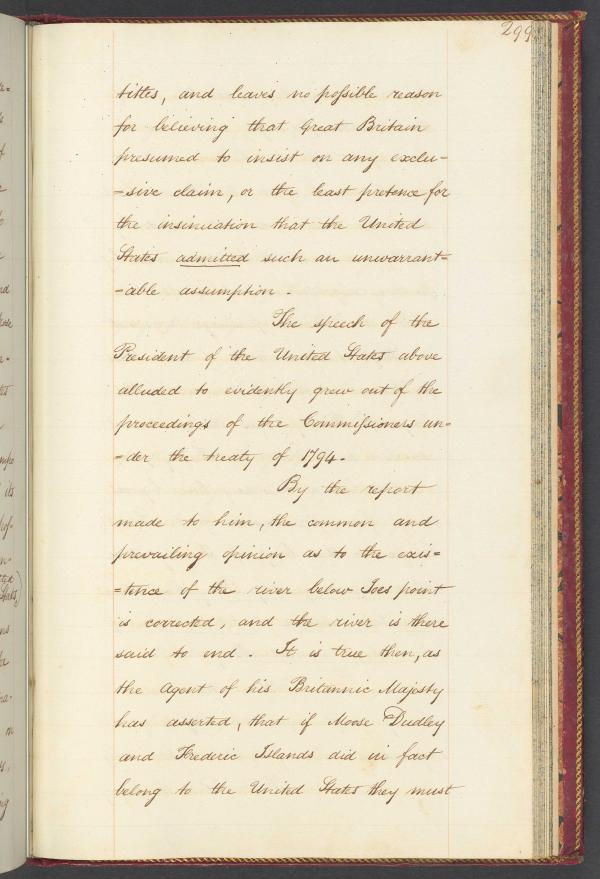 299
titles, and leaves no possible reason
for believing that Great Britain
presumed to insist on any exclu-
-sive claim, or the least pretence for
the insinuation that the United
States admitted such an unwarrant-
-able assumption.
The speech of the
President of the United States above
alluded to evidently grew out of the
proceedings of the Commissioners un-
-der the treaty of 1794.
By the report
made to him, the common and
prevailing opinion as to the exis=
=tence of the river below Joes point
is corrected, and the river is there
said to end. It is true then, as
the Agent of his Britannic Majesty
has asserted, that if Moose Dudley
and Frederic Islands did in fact
belong to the United States they must